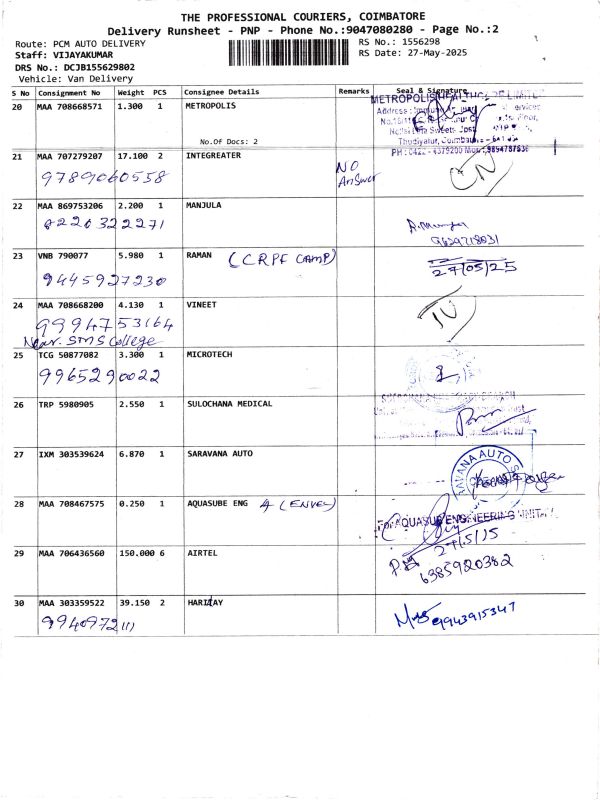 THE PROFESSIONAL COURIERS, COIMBATORE
Delivery Runsheet - PNP - Phone No.:9047080280 - Page No.:2
Route: PCM AUTO DELIVERY RS No.: 1556298
Staff: VIJAYAKUMAR RS Date: 27-May-2025
DRS No.: DCJB155629802
Vehicle: Van Delivery
S No Consignment No Weight PCS Consignee Details Remarks Seal & Signature
20 MAA 708668571 1.300 1 METROPOLIS
METROPOLIS HEALTHCARE LIMITED
Address :
No.Of Docs: 2
Thudiyalur, Coimbatore
21 MAA 707279207 17.100 2 INTEGREATER NO Answer CN
9789060558
22 MAA 869753206 2.200 1 MANJULA
8220322271
9629718031
23 VNB 790077 5.980 1 RAMAN (CRPF CAMP)
27/05/25
9445927230
24 MAA 708668200 4.130 1 VINEET
9994753164
Near. SMS College
25 TCG 50877082 3.300 1 MICROTECH
9965290022
26 TRP 5980905 2.550 1 SULOCHANA MEDICAL
27 IXM 303539624 6.870 1 SARAVANA AUTO
28 MAA 708467575 0.250 1 AQUASUB ENG 4 (ENVEL)
For AQUASUB ENGINEERING UNIT-
29 MAA 706436560 150.000 6 AIRTEL
6385920382
30 MAA 303359522 39.150 2 HARIZAY
9943915347
9940972111